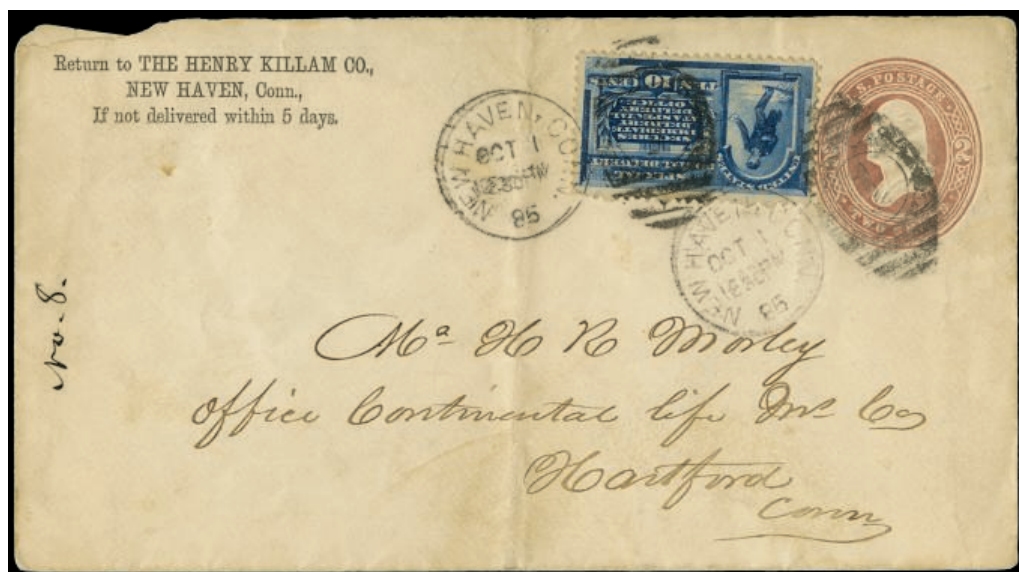 Return to THE HENRY KILLAM CO.,
NEW HAVEN, Conn.,
If not delivered within 5 days.
NEW HAVEN, CONN.
OCT 1
1230PM
85
10
U.S. POSTAGE
2
TWO
NEW HAVEN, CONN.
OCT 1
1230PM
85
No. 8.
H R Morley
Office Continental life Ins Co
Hartford
Conn